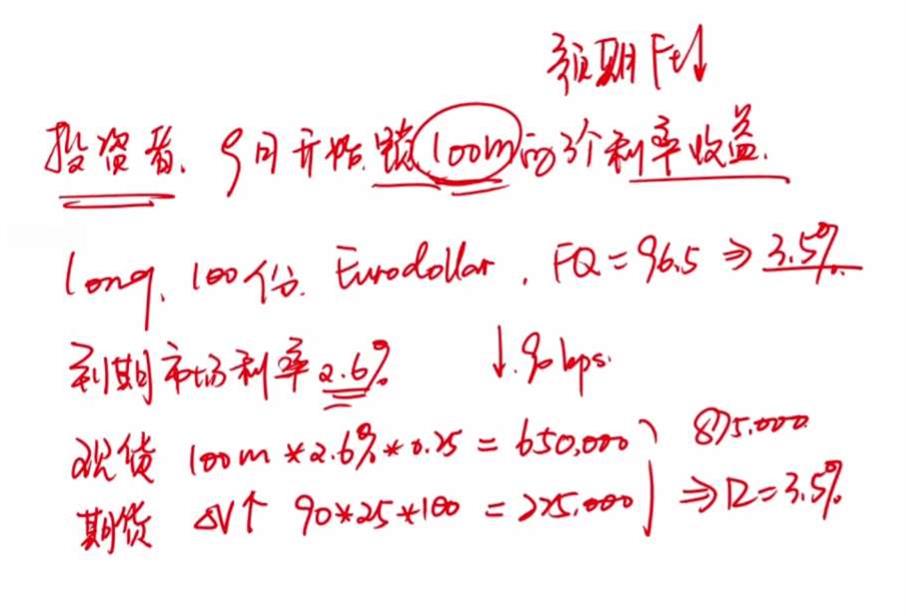 预期 Ft↓
投资者. 9月开始.锁 100m 的3个利率收益.
long. 100份. Eurodollar. FQ = 96.5 ⇒ 3.5%
到期市场利率 2.6% ↓.90bps.
现货 100m * 2.6% * 0.25 = 650,000 875.000
期货 ΔV↑ 90*25*100 = 225,000 ⇒ R=3.5%